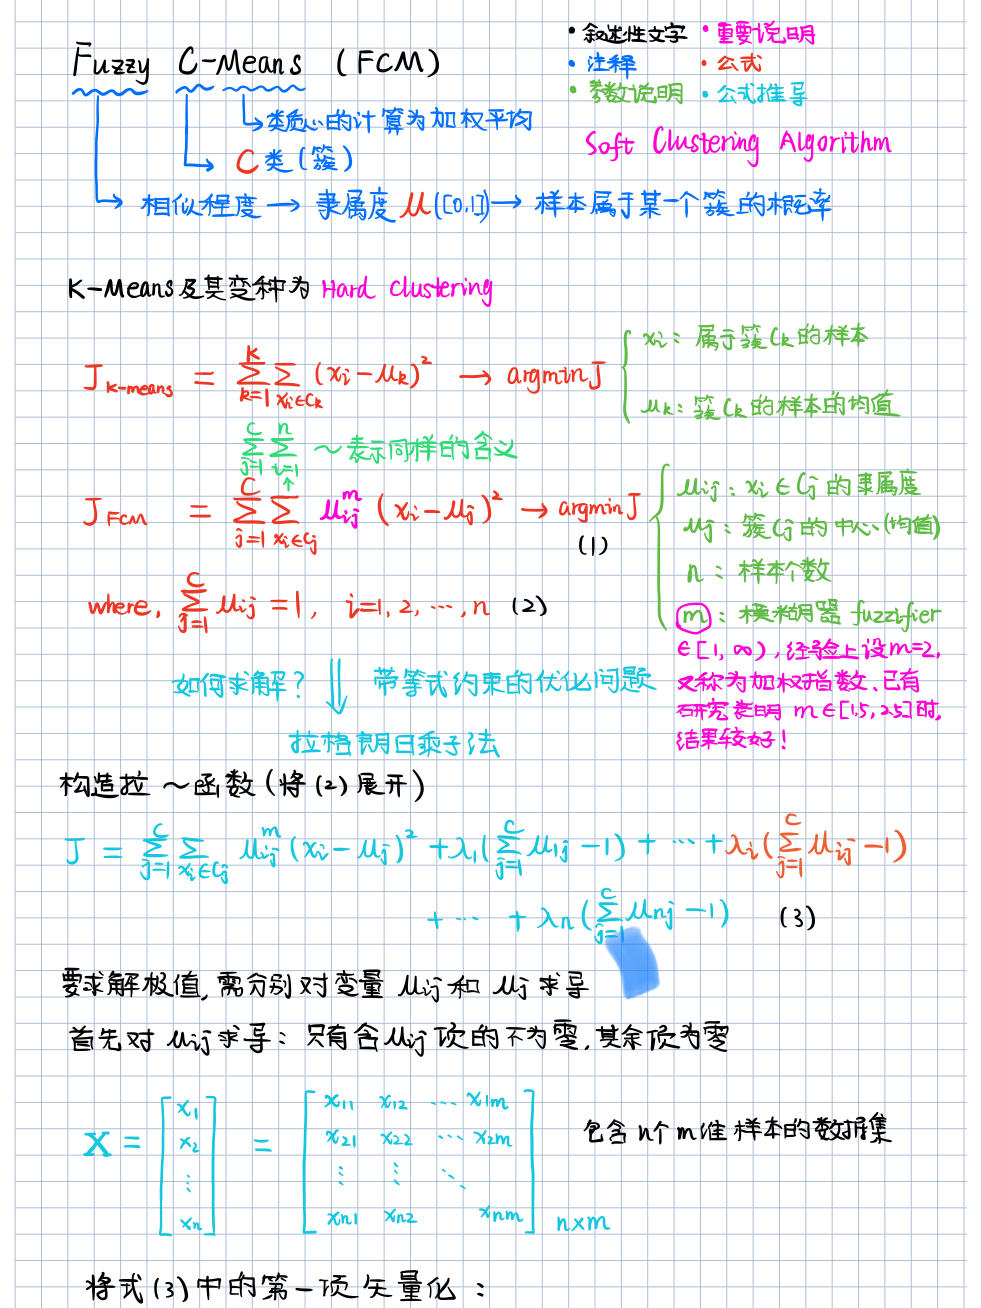 • 叙述性文字 • 重要说明
• 注释 • 公式
• 参数说明 • 公式推导
Fuzzy C-Means (FCM)
Soft Clustering Algorithm
类质心的计算为加权平均
C 类(簇)
相似程度 → 隶属度 μ ([0,1]) → 样本属于某一个簇的概率
K-Means及其变种为 Hard clustering
J K-means = Σ_{k=1}^{K} Σ_{xi∈Ck} (xi-μk)² → argmin J
xi: 属于簇Ck的样本
μk: 簇Ck的样本的均值
Σ_{j=1}^{C} Σ_{i=1}^{n} ~表示同样的含义
J FCM = Σ_{j=1}^{C} Σ_{xi∈Cj} μij^m (xi-μj)² → argmin J
(1)
μij: xi∈Cj 的隶属度
μj: 簇Cj的中心(均值)
n: 样本个数
m: 模糊器 fuzzifier
∈[1, ∞), 经验上设m=2,
又称为加权指数、已有
研究表明 m∈[1.5, 2.5]时,
结果较好!
where, Σ_{j=1}^{C} μij = 1, i=1, 2, ···, n (2)
如何求解? ⇓ 带等式约束的优化问题
拉格朗日乘子法
构造拉~函数(将(2)展开)
J = Σ_{j=1}^{C} Σ_{xi∈Cj} μij^m (xi-μj)² + λ1(Σ_{j=1}^{C} μ1j - 1) + ··· + λi(Σ_{j=1}^{C} μij - 1)
+ ··· + λn(Σ_{j=1}^{C} μnj - 1) (3)
要求解极值, 需分别对变量 μij和 μj求导
首先对 μij求导: 只有含μij项的不为零, 其余项为零
X = [x1 x2 ⋮ xn] = [x11 x12 ··· x1m
x21 x22 ··· x2m
⋮ ⋮ ⋱
xn1 xn2 xnm] n×m
包含 n个m维 样本的数据集
将式(3)中的第一项矢量化: